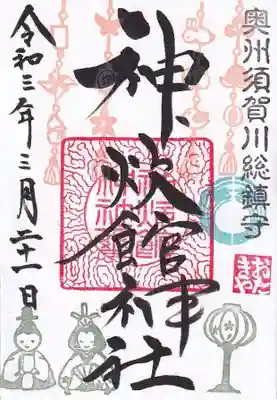 奥州須賀川総鎮守
神炊館神社
令和三年三月二十一日
おたきや